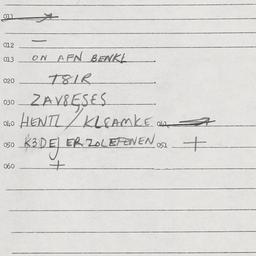 011
012 —
013 ON AFN BENKL
020 T8IR
030 ZAV8ESES
040 HENTL / KLEAMKE 041
050 K3DEJ ERZOLEFENEN 051 +
060 +